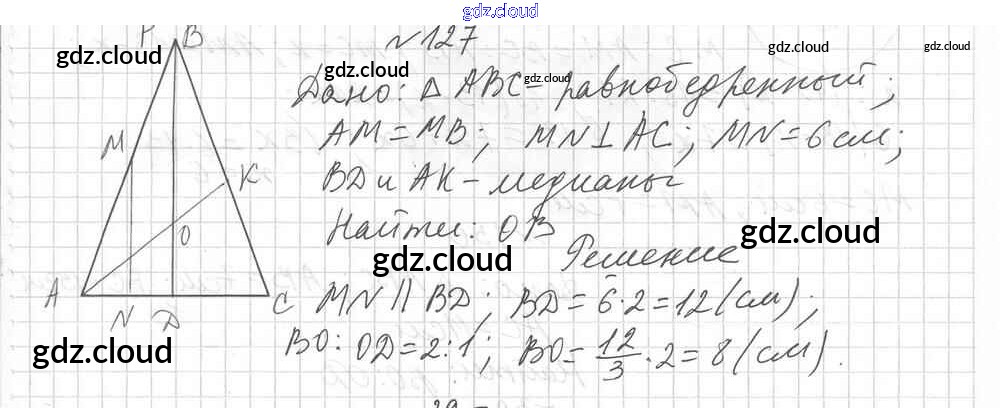 gdz.cloud
№127
B
gdz.cloud
gdz.cloud
gdz.cloud
gdz.cloud
gdz.cloud
Дано: Δ ABC - равнобедренный;
M
AM = MB; MN ⊥ AC; MN = 6 см;
K
BD и AK - медианы
O
Найти: OB
gdz.cloud
Решение
gdz.cloud
A
C
MN || BD; BD = 6·2 = 12 (см);
N D
BO : OD = 2:1; BO = 12/3 · 2 = 8 (см).
gdz.cloud